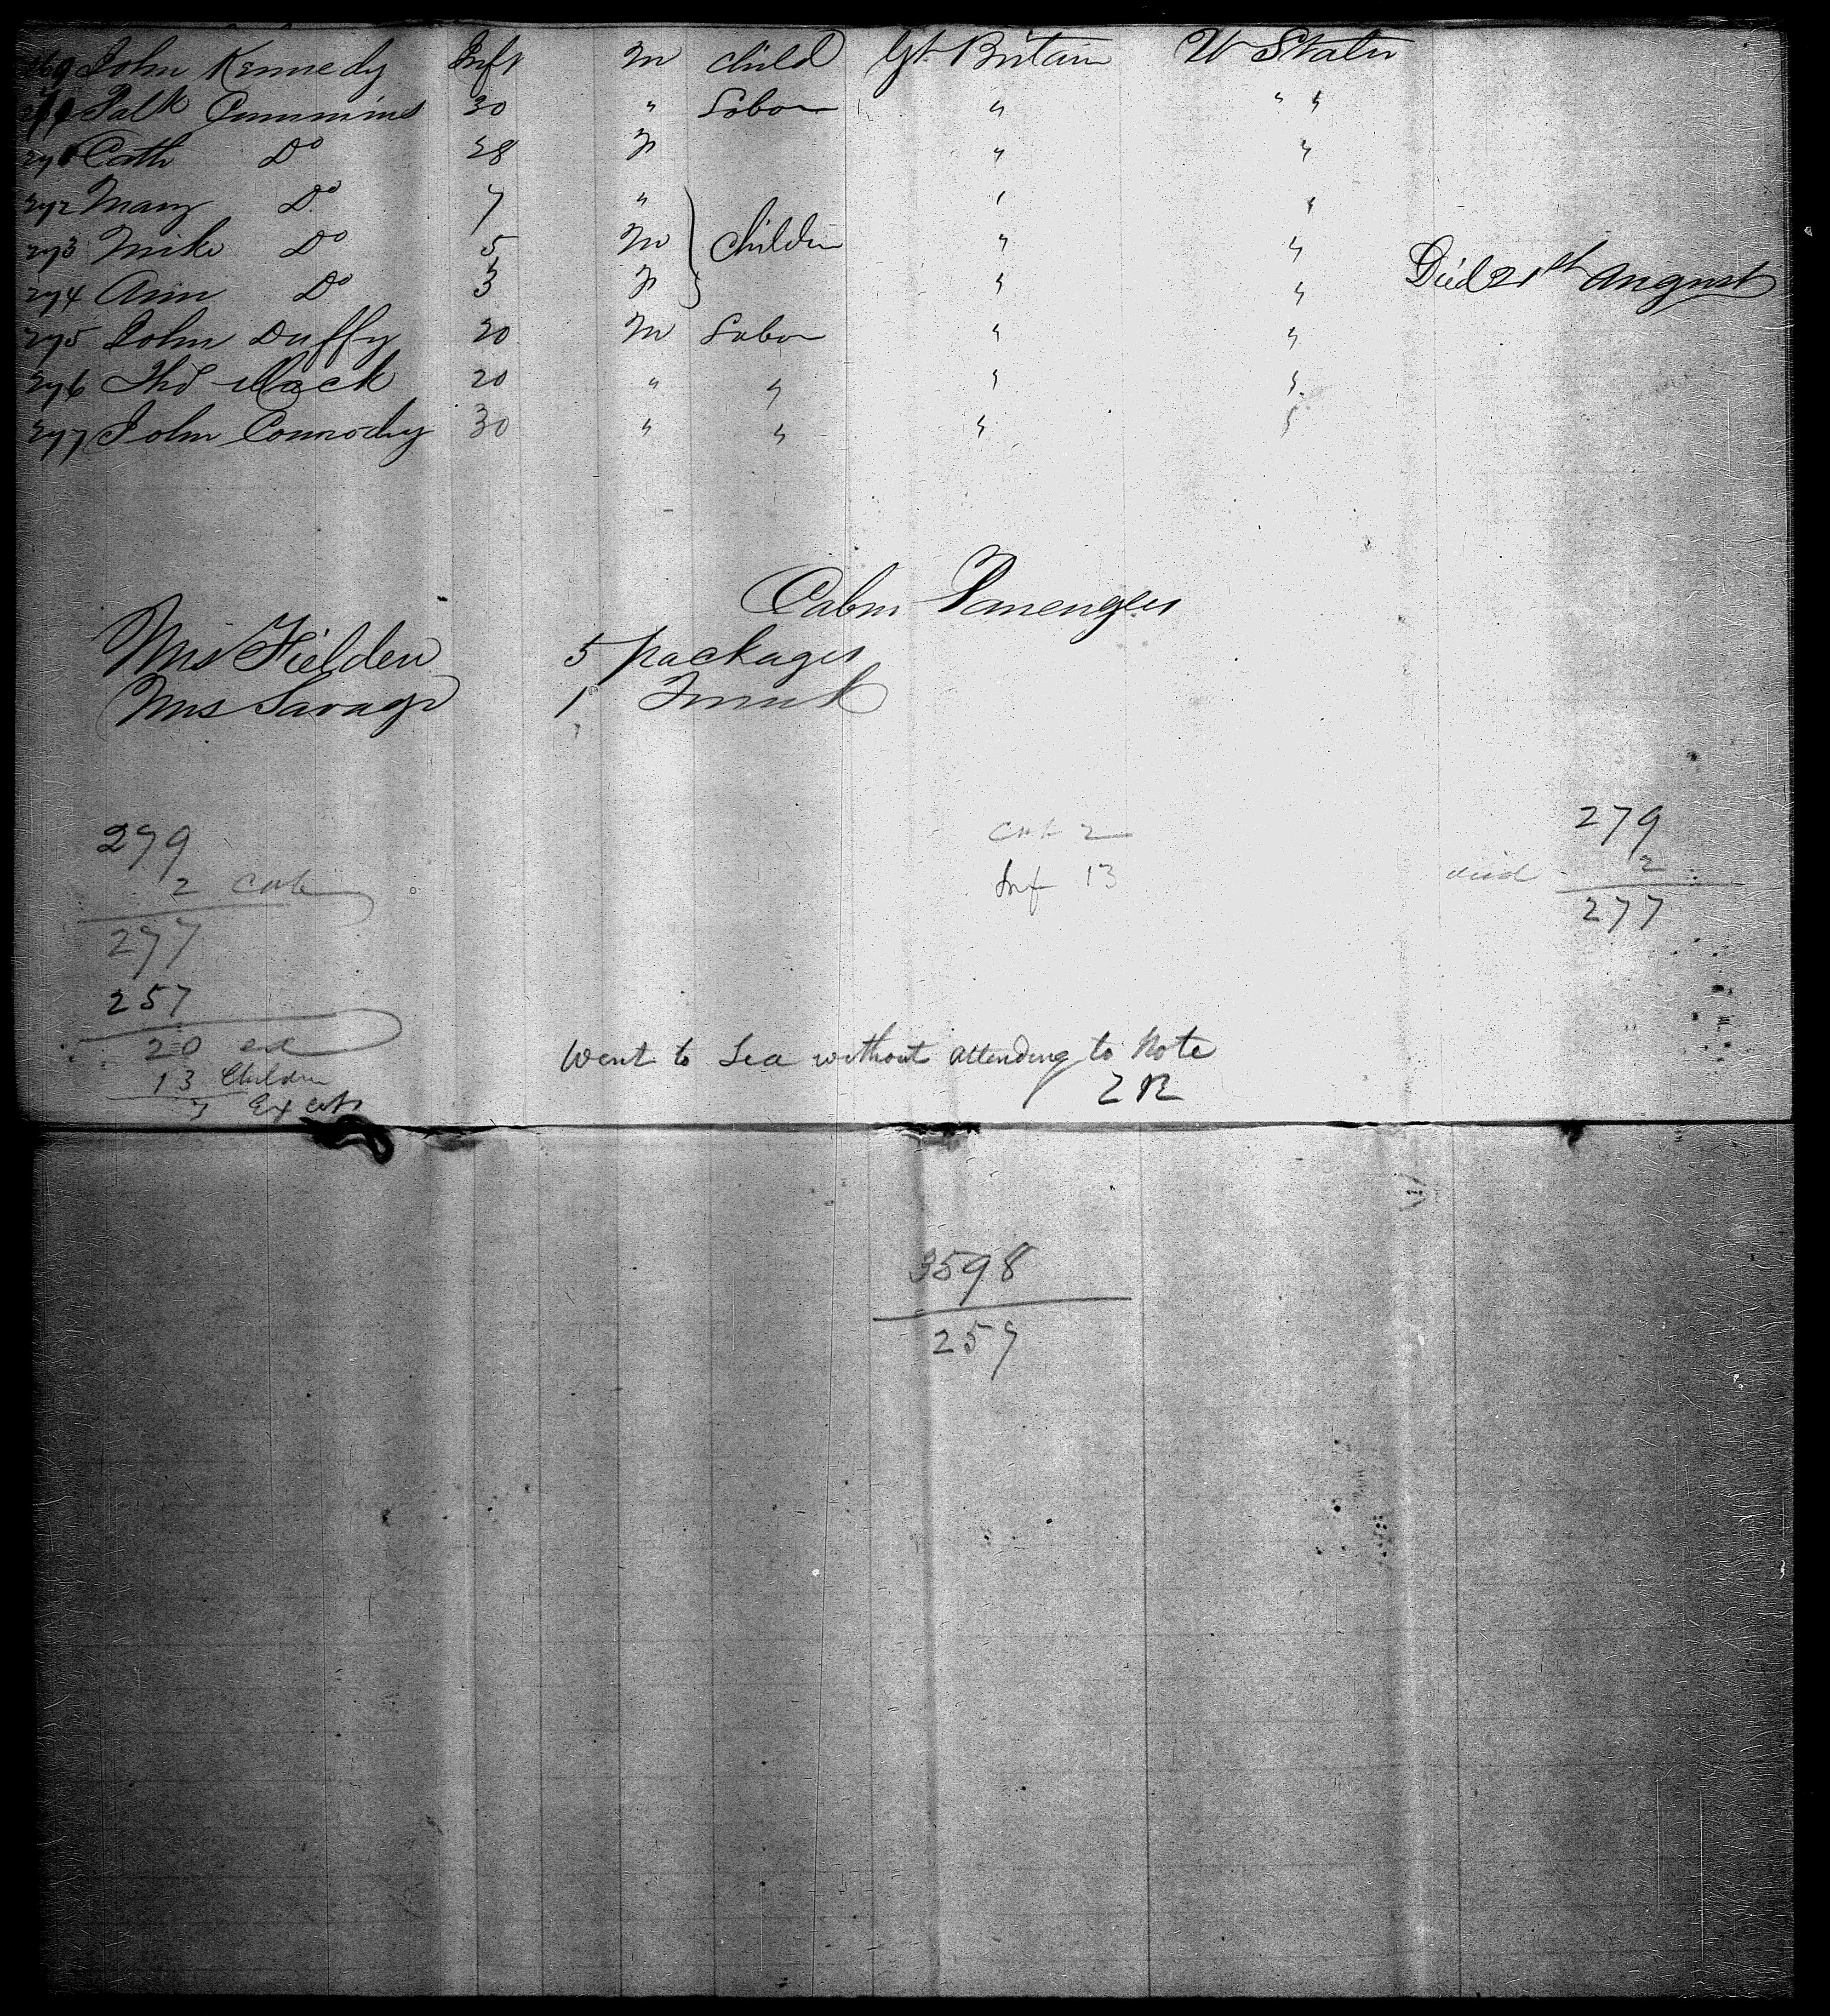 269 John Kennedy Inft M Child Gt Britain U States
270 Patk Cummins 30 " Labor " " "
271 Cath Do 28 F " "
272 Mary Do 7 " " "
273 Mike Do 5 M Children " "
274 Ann Do 3 F " " Died 21st August
275 John Duffy 20 M Labor " "
276 Thos Mack 20 " " " "
277 John Connody 30 " " " "
Cabin Passengers
Mrs Fielden 5 packages
Mrs Savage 1 Trunk
279 Cab 2 279
2 Cab Inf 13 died 2
277 277
257
20 ex
13 Children
7 Ex
Went to Sea without attending to Note
3598
257